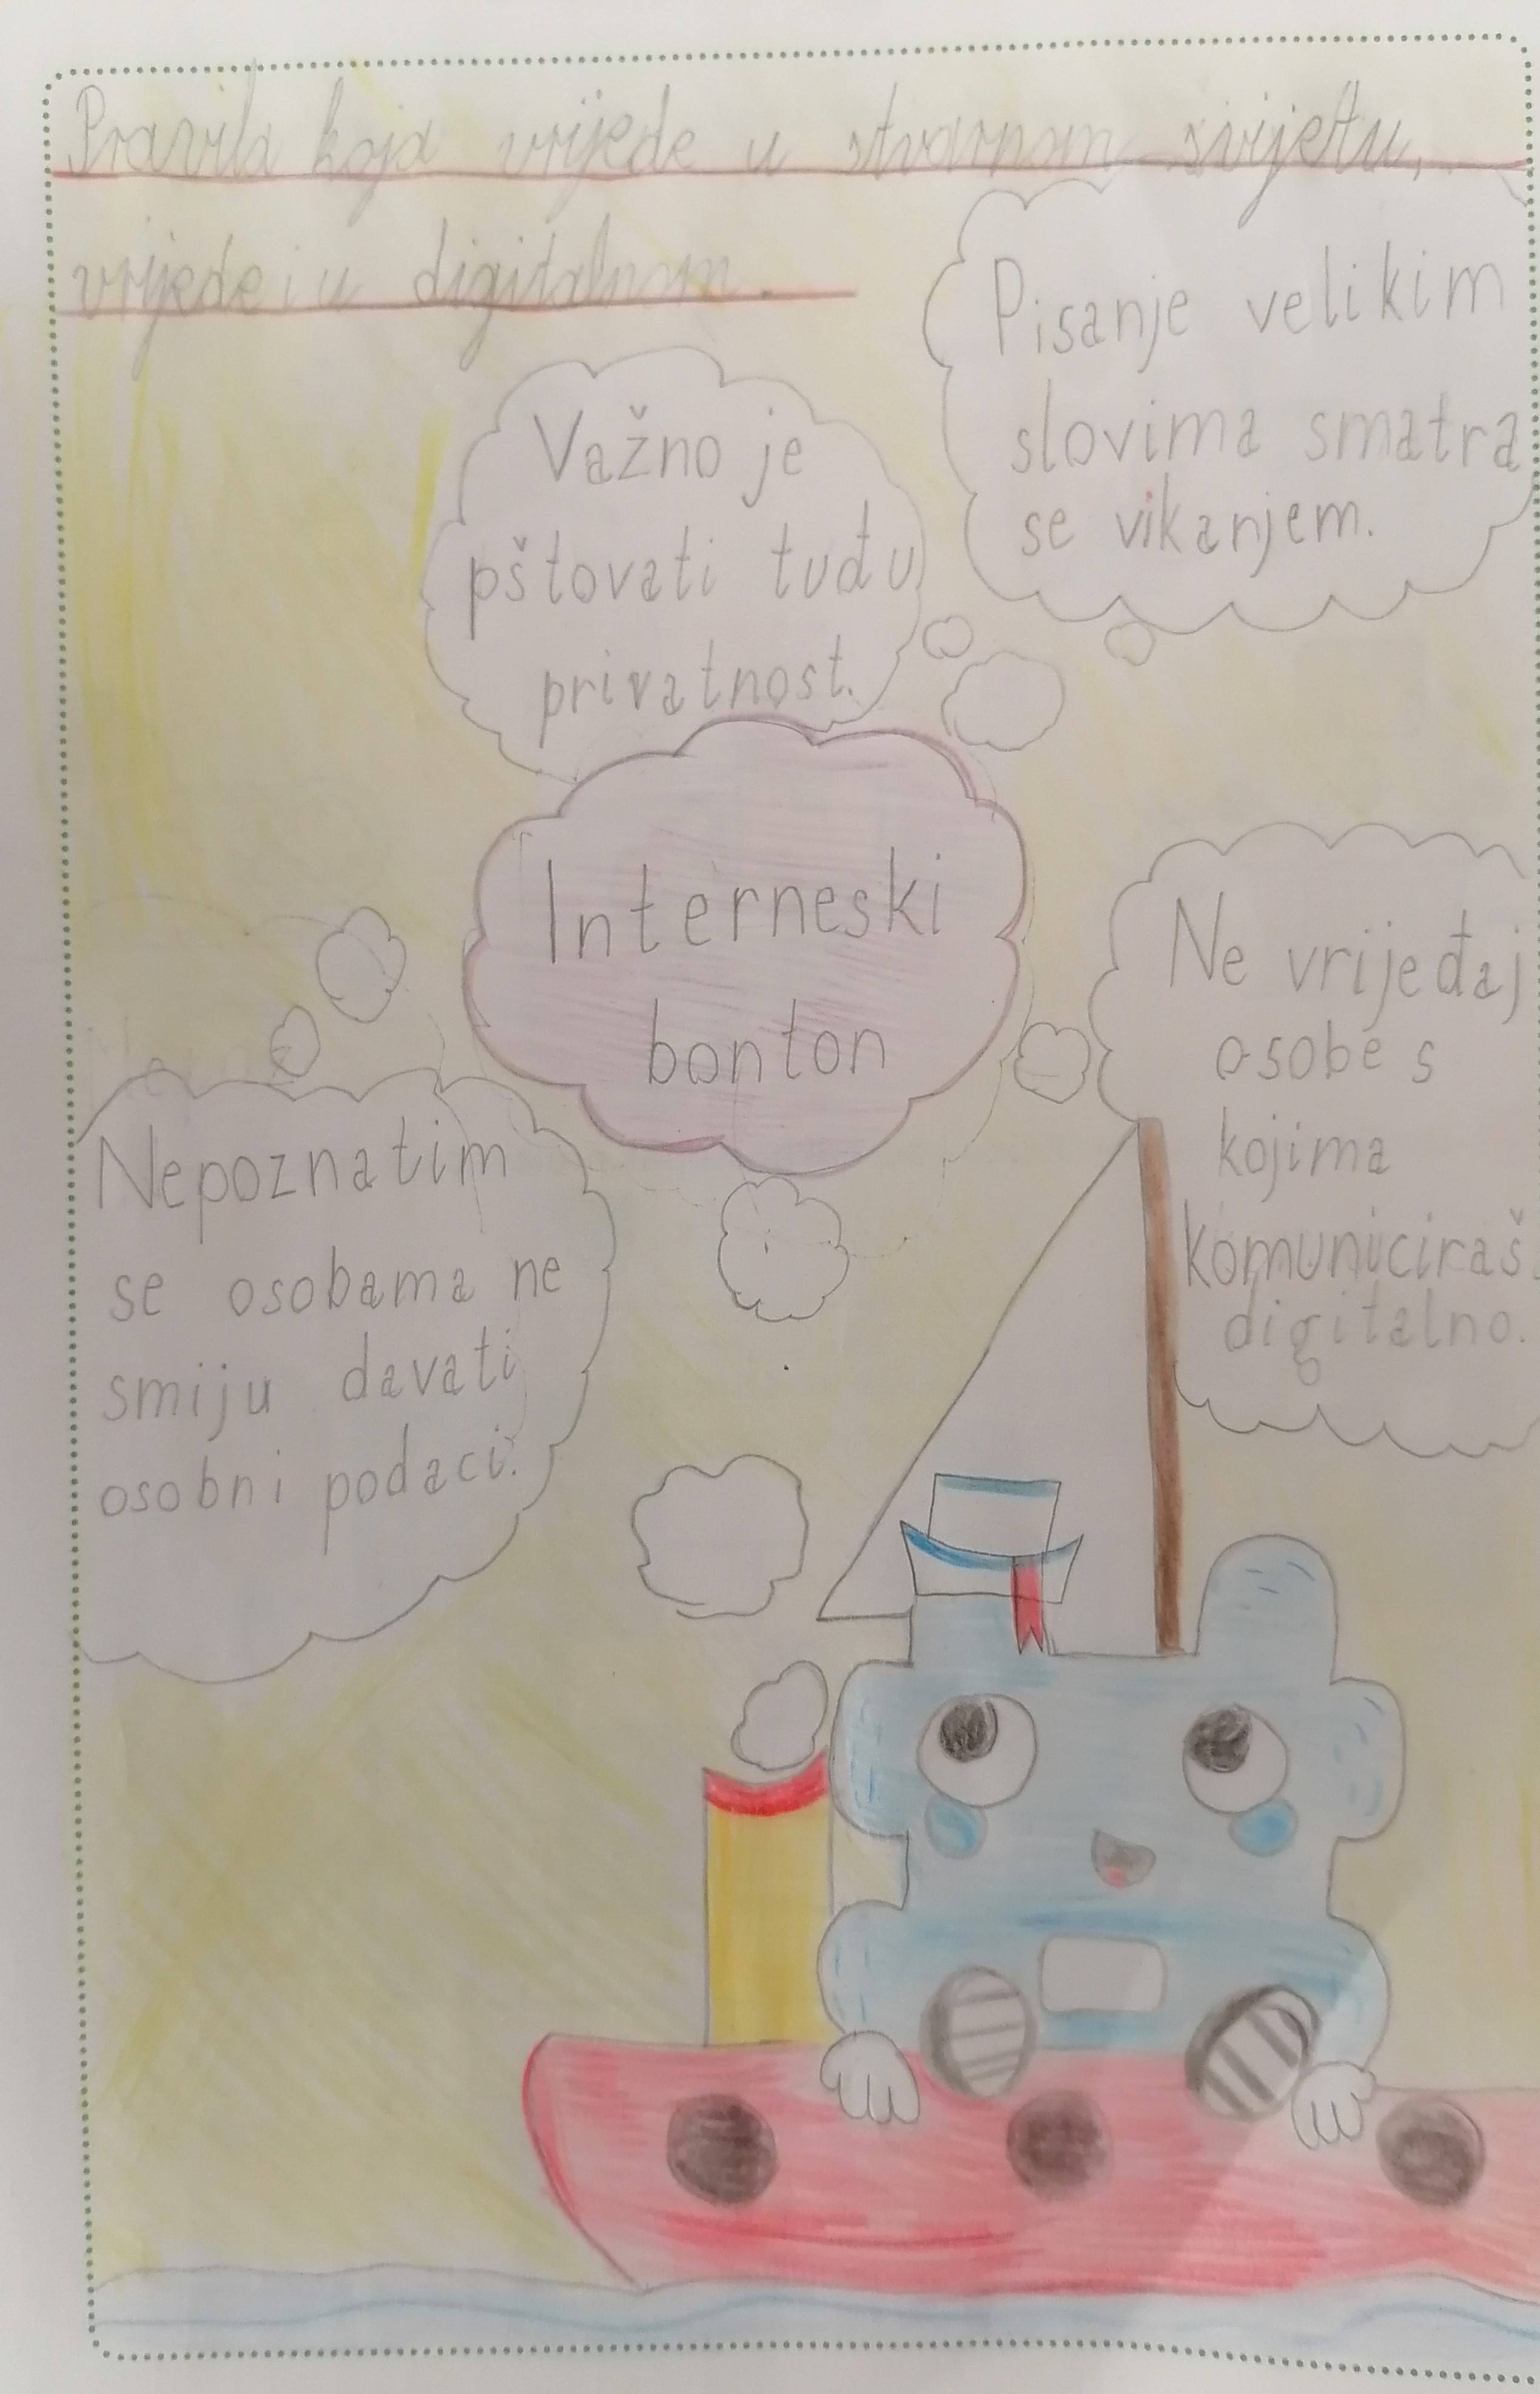 Pravila koja vrijede u stvarnom svijetu,
vrijede i u digitalnom.
Pisanje velikim
slovima smatra
se vikanjem.
Važno je
pštovati tuđu
privatnost.
Interneski
bonton
Ne vrijeđaj
osobe s
kojima
komuniciraš
digitalno.
Nepoznatim
se osobama ne
smiju davati
osobni podaci.